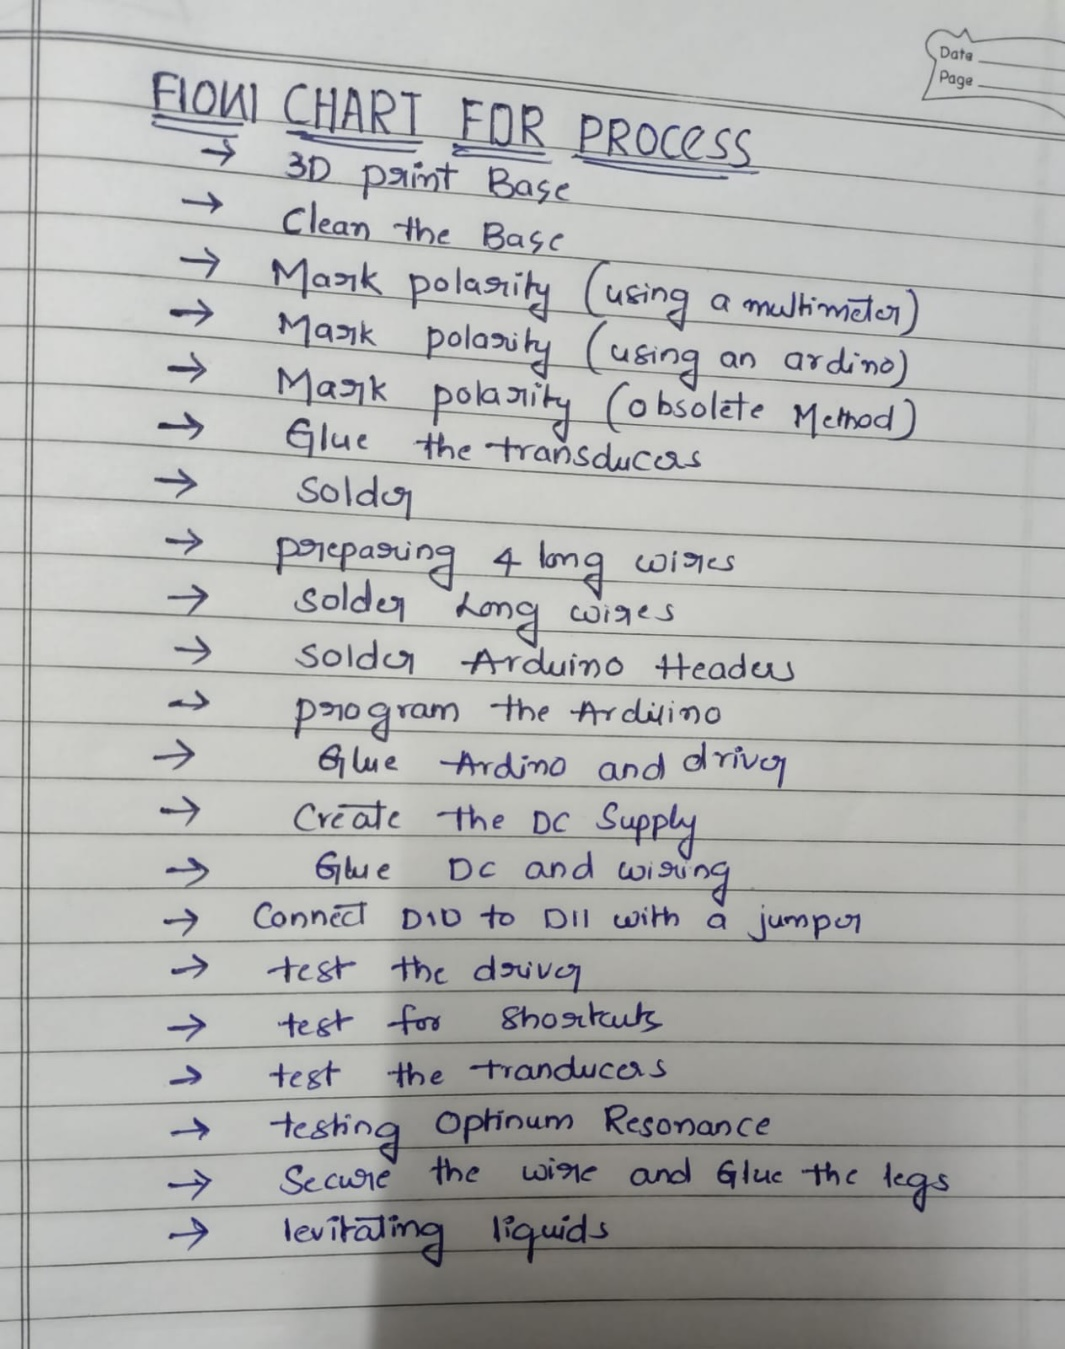 Date
Page
FlOW CHART FOR PROCESS
→ 3D print Base
→ Clean the Base
→ Mark polarity (using a multimeter)
→ Mark polarity (using an ardino)
→ Mark polarity (obsolete Method)
→ Glue the transducers
→ Solder
→ preparing 4 long wires
→ Solder Long wires
→ Solder Arduino Headers
→ program the Arduino
→ Glue Ardino and driver
→ Create the DC Supply
→ Glue DC and wiring
→ Connect D10 to D11 with a jumper
→ test the driver
→ test for Shortcuts
→ test the tranducers
→ testing Optinum Resonance
→ Secure the wire and Glue the legs
→ levitating liquids